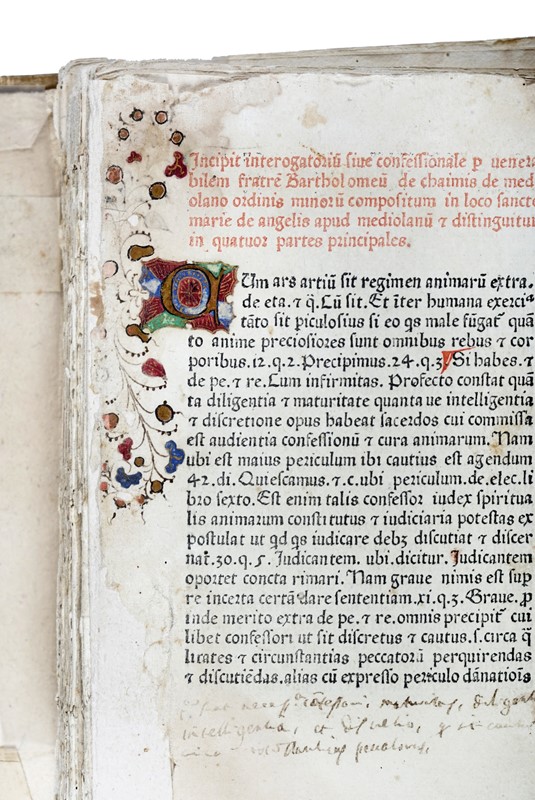 Incipit interrogatoriū siue confessionale ꝑ venera
bilem fratrē Bartholomeū de chaimis de med
olano ordinis minorū compositum in loco sancte
marie de angelis apud mediolanū ⁊ distinguitur
in quatuor partes principales.
CUm ars artiū sit regimen animarū extra.
de eta. ⁊ q̄. Cū sit. Et īter humana exerci
tāto sit ꝑiculosius si eo qs male fūgat᷑ quā
to anime preciosiores sunt omnibus rebus ⁊ cor
poribus. 12. q. 2. Precipimus. 24. q. 3. Si habes. ⁊
de pe. ⁊ re. Cum infirmitas. Profecto constat quā
ta diligentia ⁊ maturitate quanta ue intelligentia
⁊ discretione opus habeat sacerdos cui commissa
est audientia confessionū ⁊ cura animarum. Nam
ubi est maius periculum ibi cautius est agendum
42. di. Quiescamus. ⁊. c. ubi periculum. de. elec. li
bro sexto. Est enim talis confessor iudex spiritua
lis animarum constitutus ⁊ iudiciaria potestas ex
postulat ut qd qs iudicare debꝫ discutiat ⁊ discer
nat᷑. 30. q. 5. Judicantem. ubi. dicitur. Judicantem
oportet cuncta rimari. Nam graue nimis est suꝑ
re incerta certā dare sententiam. xi. q. 3. Graue. ꝓ
inde merito extra de pe. ⁊ re. omnis precipit᷑ cui
libet confessori ut sit discretus ⁊ cautus. s. circa q̄
licates ⁊ circunstantias peccatorū perquirendas
⁊ discutiēdas. alias cū expresso periculo dānatiōis
intelligentia, et